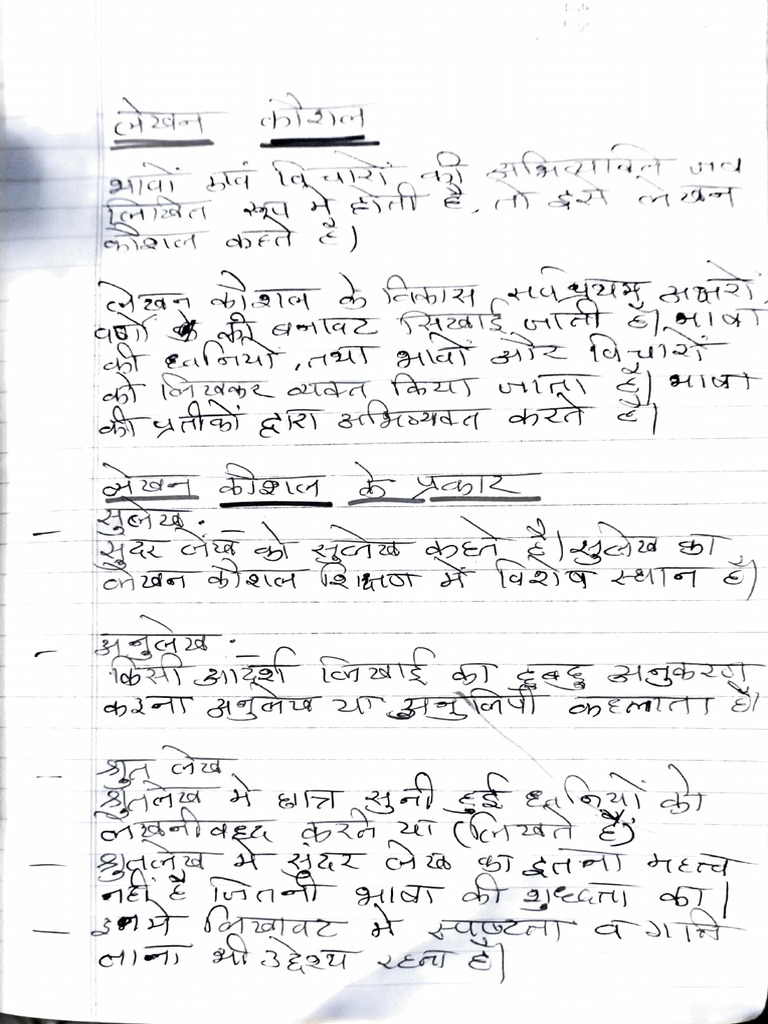 लेखन कौशल
भावों एवं विचारों की अभिव्यक्ति जब
लिखित रूप में होती है, तो इसे लेखन
कौशल कहते है।
लेखन कौशल के विकास सर्वप्रथम अक्षरो,
वर्णो की बनावट सिखाई जाती है। भाषा
की ध्वनियों, तथा भावों और विचारों
को लिखकर व्यक्त किया जाता है। भाषा
की प्रतीकों द्वारा अभिव्यक्त करते है।
लेखन कौशल के प्रकार
- सुलेख -
सुदर लेख को सुलेख कहते है। सुलेख का
लेखन कौशल शिक्षण में विशेष स्थान है।
- अनुलेख -
किसी आदर्श लिखाई का हुबहु अनुकरण
करना अनुलेख या अनुलिपी कहलाता है।
- श्रुत लेख
श्रुतलेख मे छात्र सुनी हुई ध्वनियों को
लेखनीबध्द करते या (लिखते है)
- श्रुतलेख मे सुंदर लेख का इतना महत्त्व
नहीं है जितनी भाषा की शुध्दता का।
- इनमे लिखावट मे स्पष्टता व गति
लाना भी उद्देश्य रहता है।